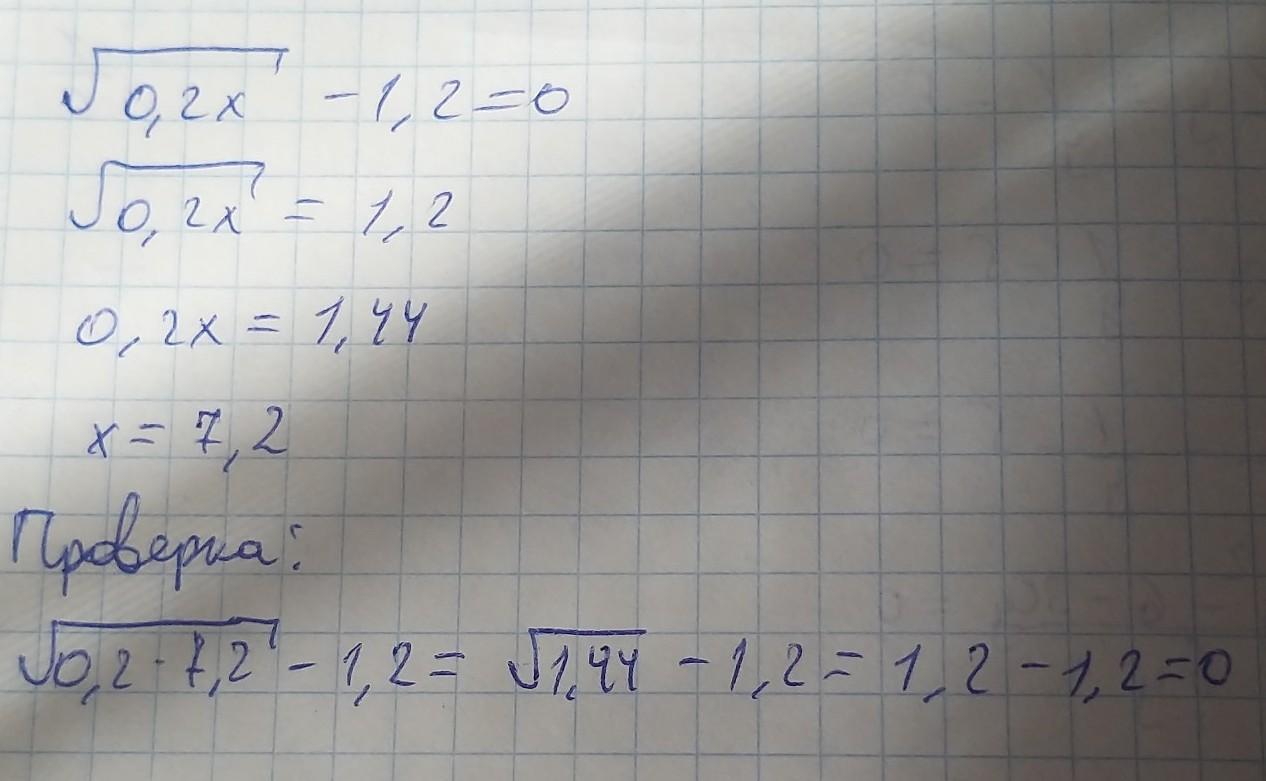 √0,2x - 1,2 = 0
√0,2x = 1,2
0,2x = 1,44
x = 7,2
Проверка:
√0,2 · 7,2 - 1,2 = √1,44 - 1,2 = 1,2 - 1,2 = 0